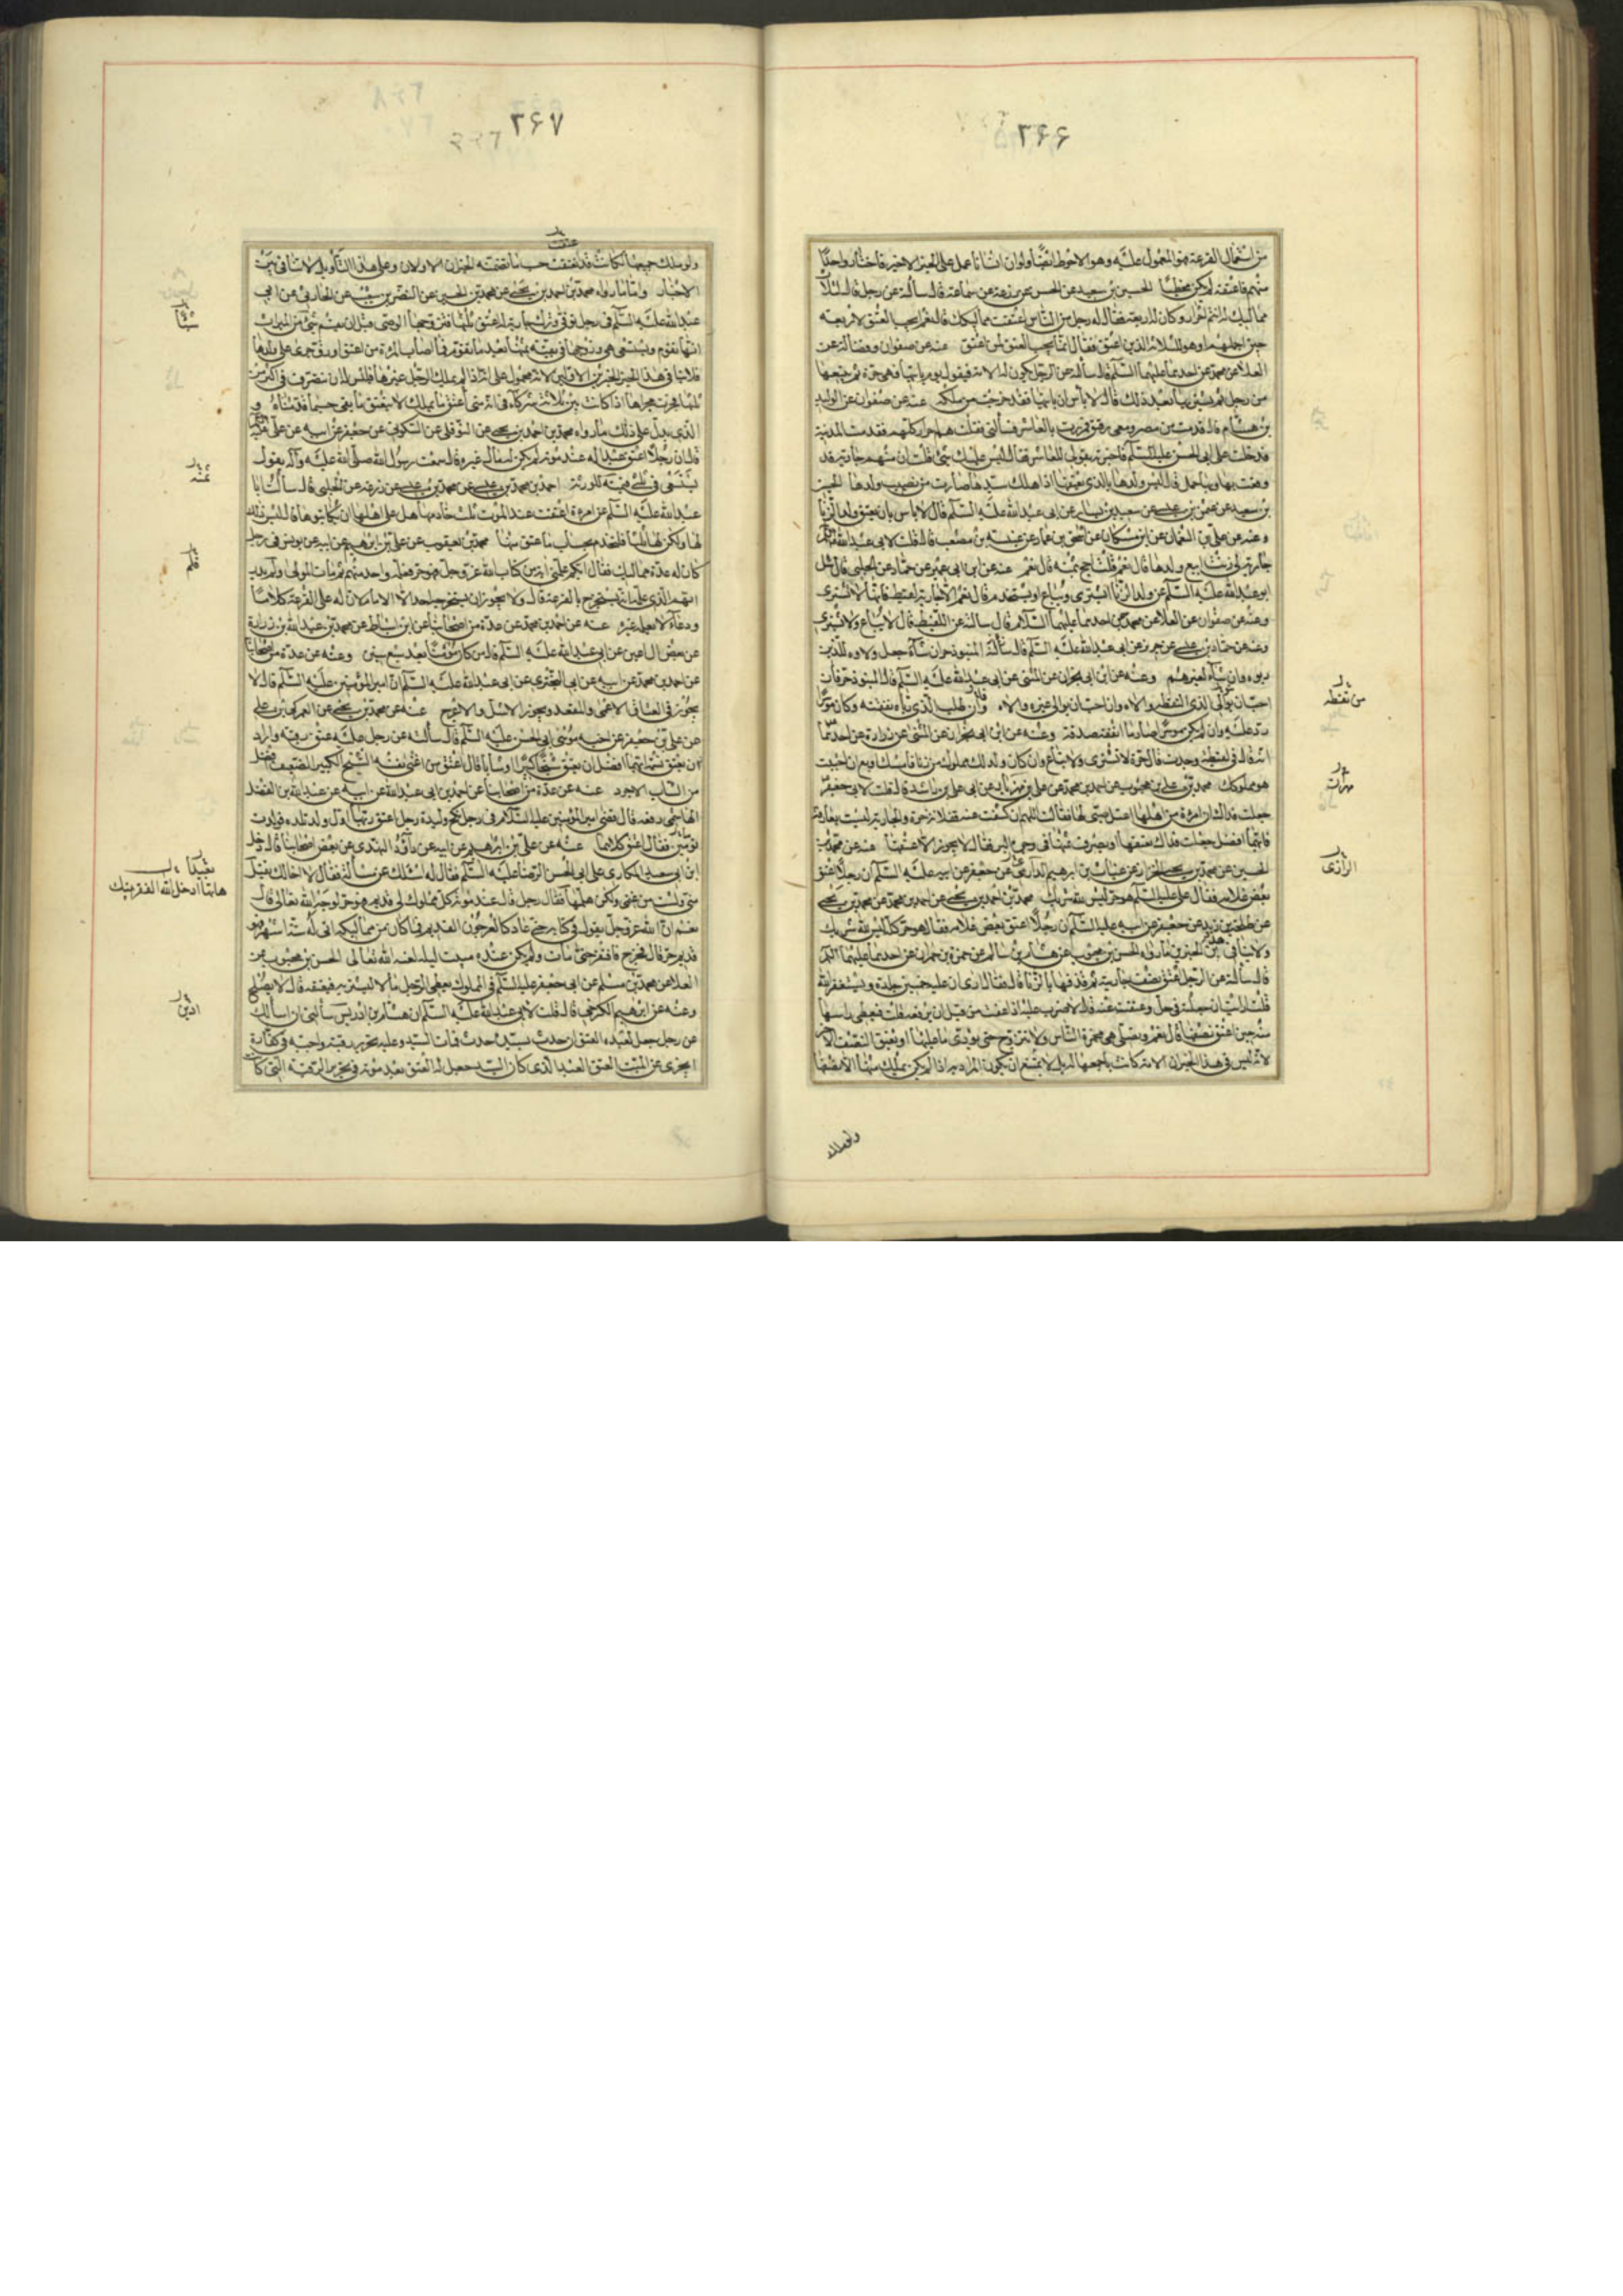 ٢۶۶
من استعمال القرعة هو المعمول عليه وهو الاحوط ايضا ولو ان انسانا عمل على الخبر الاخير فاختار واحدا
منهم فاعتقه لم يكن مخطئا الحسين بن سعيد عن الحسن عن زرعة عن سماعة قال سألته عن رجل قال لثلاثة
مماليك له انتم احرار وكان له اربعة فقال له رجل من الناس اعتقت مماليكك قال نعم ايجب العتق لاربعته
حين اجملهم او هو للثلاثة الذين اعتق فقال انما يجب العتق لمن اعتق عنه عن صفوان وفضالة عن
العلا عن محمد عن احدهما عليهما السلم قال سألته عن الرجل يكون له الامة فيقول يوم ياتيها فهي حرة ثم يبيعها
من رجل ثم يشتريها بعد ذلك قال لا بأس بان ياتيها فقد خرجت من ملكه عنه عن صفوان عن الوليد
بن هشام قال قدمت من مصر ومعي رقيق فمررت بالعاشر فسألني فقلت هم احرار كلهم فقدمت المدينة
فدخلت على ابي الحسن عليه السلم فاخبرته بقولي للعاشر فقال ليس عليك شئ فقلت ان منهم جارية قد
وقعت بها وبها حمل قال اليس ولدها بالذي يعتقها اذا هلك سيدها صارت من نصيب ولدها الحسين
بن سعيد عن عثمن بن عيسى عن سعيد بن يسار عن ابي عبد الله عليه السلم قال لا باس بان يعتق ولد الزنا
وعنه عن علي بن النعمان عن ابن مسكان عن اسحق بن عمار عن عنبسة بن مصعب قال قلت لابي عبد الله عليه السلم
جارية لي زنت ابيع ولدها قال نعم قلت احج بثمنه قال نعم عنه عن ابن ابي عمير عن حماد عن الحلبي قال سئل
ابو عبد الله عليه السلم عن ولد الزنا ايشترى ويباع او يستخدم قال نعم الا جارية لقيطة فانها لا تشترى
وعنه عن صفوان عن العلا عن محمد عن احدهما عليهما السلام قال سالته عن اللقيطة قال لا تباع ولا تشترى
وعنه عن حماد بن عيسى عن حريز عن ابي عبد الله عليه السلم قال سألته المنبوذ حر ان شاء جعل ولاءه للذين
ربوه وان شاء لغيرهم وعنه عن ابن ابي نجران عن المثنى عن ابي عبد الله عليه السلم قال المنبوذ حر فان
احب ان يوالي الذي التقطه والاه وان احب ان يوالي غيره والاه فان طلب الذي رباه بنفقته وكان موسرا
رد عليه وان لم يكن موسرا صار ما انفقه صدقة وعنه عن ابن ابي نجران عن المثنى عن زرارة عن احدهما
انه قال في لقيطة وجدت قال حرة لا تشترى ولا تباع وان كان ولد لك مملوك من زنا فامسك او بع ان احببت
هو مملوكك محمد بن علي بن محبوب عن احمد بن محمد عن علي بن مهزيار عن ابي علي بن راشد قال قلت لابي جعفر
جعلت فداك ان امرءة من اهلها اعتل صبي لها فقالت اللهم ان كشفت عنه ففلانة حرة والجارية ليست بعارفة
فايهما افضل جعلت فداك تعتقها او يصرف ثمنها في وجوه البر فقال لا يجوز الا عتقها عنه عن محمد بن
الحسين عن محمد بن يحيى الخزاز عن غياث بن ابرهيم الدارمي عن جعفر عن ابيه عليه السلم ان رجلا اعتق
بعض غلامه فقال علي عليه السلم هو حر ليس لله شريك محمد بن احمد بن يحيى عن احمد بن محمد عن محمد بن يحيى
عن طلحة بن زيد عن جعفر عن ابيه عليه السلم ان رجلا اعتق بعض غلامه فقال هو حر كله ليس لله شريك
ولا ينافي هذين الخبرين ما رواه الحسن بن محبوب عن هشام بن سالم عن حمزة بن حمران عن احدهما عليهما السلم
قال سألته عن الرجل اعتق نصف جاريته ثم قذفها بالزنا قال فقال ارى ان عليه خمسين جلدة ويستغفر الله
قلت ارايت ان جعلته في حل وعفت عنه قال لا ضرب عليه اذا عفت من قبل ان ترفعه قلت فتغطي راسها
منه حين اعتق نصفها قال نعم وتصلي وهي مخمرة الراس ولا تتزوج حتى تؤدي ما عليها او يعتق النصف الاخر
لانه ليس في هذا الخبر ان الامة كانت باجمعها له بل لا يمتنع ان يكون المراد به اذا لم يكن يملك منها الا نصفها
من لقطه
الرازى
ولو ملك
٢۶٧
ولو ملك جميعها لكانت قد انعتقت حسب ما تضمنه الخبران الاولان وعلى هذا التأويل لا تنافي بين
الاخبار واما ما رواه محمد بن احمد بن يحيى عن محمد بن الحسين عن النضر بن شعيب عن الحارثي عن ابي
عبد الله عليه السلم في رجل توفي وترك جارية له اعتق ثلثها فتزوجها الوصي قبل ان يقسم شئ من الميراث
انها تقوم وتستسعى هي وزوجها في بقية ثمنها بعد ما تقوم فما اصاب المرءة من عتق او رق جرى على ولدها
فلا ينافي هذا الخبر الخبرين الاولين لانه محمول على انه اذا لم يملك الرجل غيرها فليس له ان يتصرف في اكثر من
ثلثها فجرت مجراها اذا كانت بين ثلاثة شركاء في انه متى اعتق ما يملك لا ينعتق ما بقي حسبما قدمناه و
الذي يدل على ذلك ما رواه محمد بن احمد بن يحيى عن النوفلي عن السكوني عن جعفر عن ابيه عن علي عليه السلم
قال ان رجلا اعتق عبدا له عند موته لم يكن له مال غيره قال سمعت رسول الله صلى الله عليه وآله يقول
يستسعى في ثلثي قيمته للورثة احمد بن محمد بن عيسى عن محمد بن عيسى عن زرعة عن الحلبي قال سألت ابا
عبد الله عليه السلم عن امرءة اعتقت عند الموت ثلث خادمها هل على اهلها ان يكاتبوها قال ليس ذلك
لها ولكن لها ثلثها فلتخدم بحساب ما عتق منها محمد بن يعقوب عن علي بن ابرهيم عن ابيه عن يونس في رجل
كان له عدة مماليك فقال ايكم علمني اية من كتاب الله عز وجل فهو حر فعلمه واحد منهم ثم مات المولى ولم يدر
ايهم الذي علمه انه يستخرج بالقرعة قال ولا يجوز ان يستخرجه احد الا الامام لان له على القرعة كلاما
ودعاء لا يعلمه غيره عنه عن احمد بن محمد عن عدة من اصحابنا عن ابن اسباط عن محمد بن عبد الله بن زرارة
عن بعض ال اعين عن ابي عبد الله عليه السلم قال من كان مؤمنا بعد سبع سنين وعنه عن عدة من اصحابنا
عن احمد بن محمد عن ابيه عن ابي البختري عن ابي عبد الله عليه السلم ان امير المؤمنين عليه السلم قال لا
يجوز في العتاق الاعمى والمقعد ويجوز الاشل والاعرج عنه عن محمد بن يحيى عن العمركي بن علي
عن علي بن جعفر عن اخيه موسى ابي الحسن عليه السلم قال سألته عن رجل عليه عتق رقبة واراد
ان يعتق نسمة ايهما افضل ان يعتق شيخا كبيرا او شابا قال اعتق من اغنى نفسه الشيخ الكبير الضعيف افضل
من الشاب الاجرد عنه عن عدة من اصحابنا عن احمد بن ابي عبد الله عن ابيه عن عبد الله بن الفضل
الهاشمي رفعه قال قضى امير المؤمنين عليه السلام في رجل نكح وليدة رجل اعتق ربها اول ولد تلده فولدت
توامين فقال اعتق كلاهما عنه عن علي بن ابرهيم عن ابيه عن داود النهدي عن بعض اصحابنا قال دخل
ابن ابي سعيد المكاري على ابي الحسن الرضا عليه السلم فقال له اسئلك عن مسألة فقال لا اخالك تقبل
مني ولست من غنمي ولكن هلمها فقال رجل قال عند موته كل مملوك لي قديم فهو حر لوجه الله تعالى قال
نعم ان الله عز وجل يقول في كتابه حتى عاد كالعرجون القديم فما كان من مماليكه اتى له ستة اشهر فهو
قديم حر قال فخرج فافتقر حتى مات ولم يكن عنده مبيت ليلة لعنه الله تعالى الحسن بن محبوب عن
العلا عن محمد بن مسلم عن ابي جعفر عليه السلم في المملوك يعطي الرجل مالا ليشتريه فيعتقه قال لا يصلح
وعنه عن ابرهيم الكرخي قال قلت لابي عبد الله عليه السلم ان هشام بن ادريس سألني ان اسالك
عن رجل جعل لعبده العتق ان حدث بسيده حدث فمات السيد وعليه تحرير رقبة واجبة في كفارة
ايجزي عن الميت العتق العبد الذي كان السيد جعل له العتق بعد موته في تحرير الرقبة التي كانت
شيئا
عنه